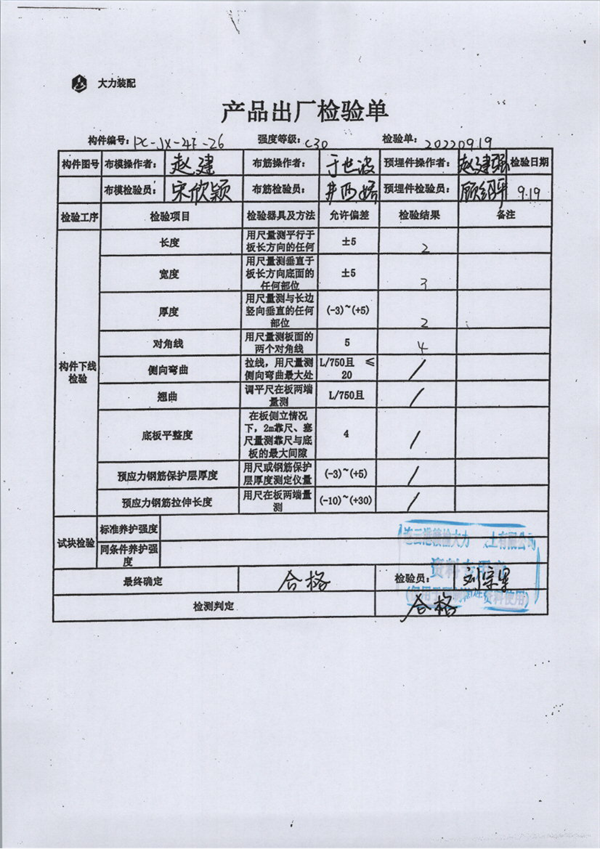 大力装配
产品出厂检验单
构件编号: PC-JX-4F-26 强度等级: C30 检验单: 20220919
构件图号 布模操作者: 赵建 布筋操作者: 于世波 预埋件操作者: 赵建强 检验日期
布模检验员: 宋欣颖 布筋检验员: 预埋件检验员: 9.19
检验工序 检验项目 检验器具及方法 允许偏差 检验结果 备注
构件下线检验
长度 用尺量测平行于板长方向的任何 ±5 2
宽度 用尺量测垂直于板长方向底面的任何部位 ±5 3
厚度 用尺量测与长边竖向垂直的任何部位 (-3)~(+5) 2
对角线 用尺量测板面的两个对角线 5 4
侧向弯曲 拉线，用尺量测侧向弯曲最大处 L/750且 ≤20 /
翘曲 调平尺在板两端量测 L/750且 /
底板平整度 在板侧立情况下，2m靠尺、塞尺量测靠尺与底板的最大间隙 4 /
预应力钢筋保护层厚度 用尺或钢筋保护层厚度测定仪量 (-3)~(+5) /
预应力钢筋拉伸长度 用尺在板两端量测 (-10)~(+30) /
试块检验 标准养护强度
同条件养护强度
最终确定 合格 检验员:
检测判定 合格